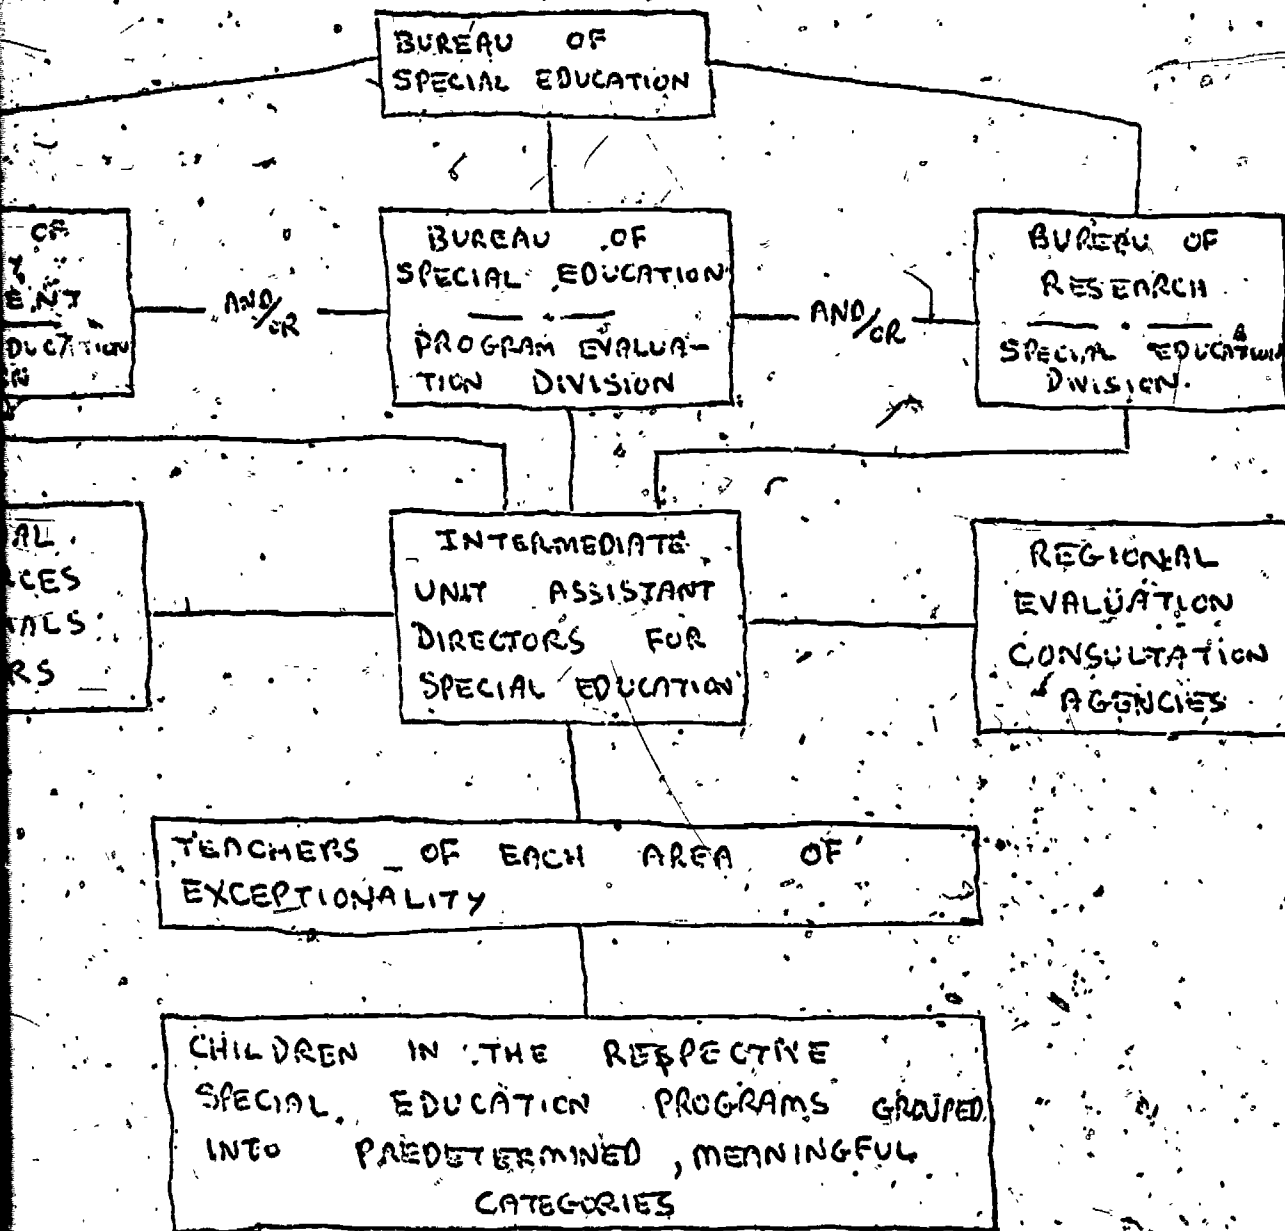 BUREAU OF
SPECIAL EDUCATION
OF
AND/OR
BUREAU OF
SPECIAL EDUCATION
PROGRAM EVALUA-
TION DIVISION
AND/OR
BUREAU OF
RESEARCH
SPECIAL EDUCATION
DIVISION
INTERMEDIATE
UNIT ASSISTANT
DIRECTORS FOR
SPECIAL EDUCATION
REGIONAL
EVALUATION
CONSULTATION
AGENCIES
TEACHERS OF EACH AREA OF
EXCEPTIONALITY
CHILDREN IN THE RESPECTIVE
SPECIAL EDUCATION PROGRAMS GROUPED
INTO PREDETERMINED, MEANINGFUL
CATEGORIES